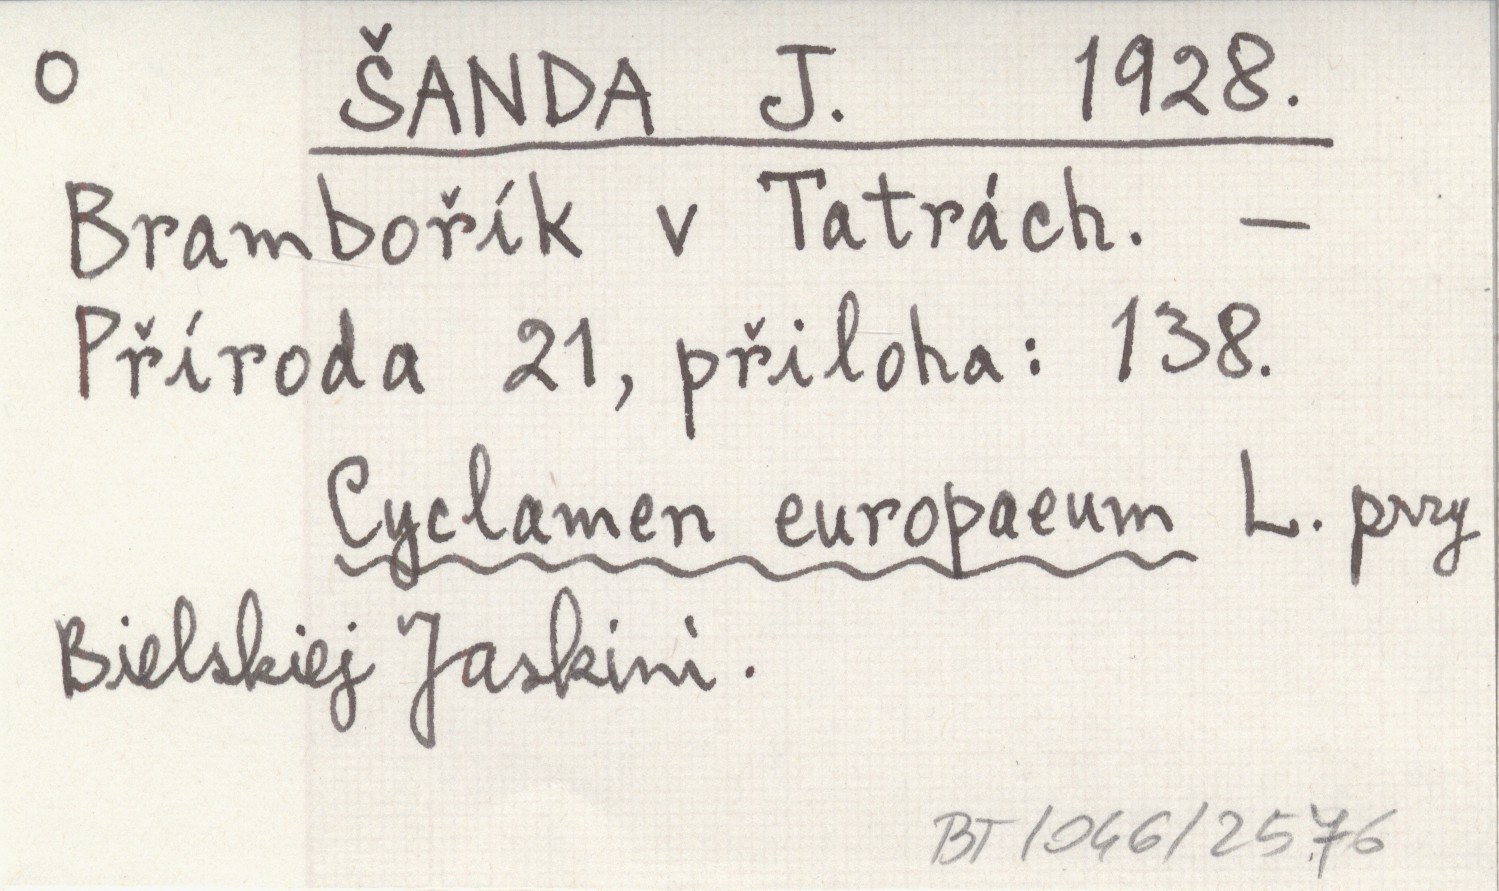 O ŠANDA J. 1928.
Brambořík v Tatrách. —
Příroda 21, přiloha: 138.
Cyclamen europaeum L. przy
Bielskiej Jaskini.
BT/046/2576